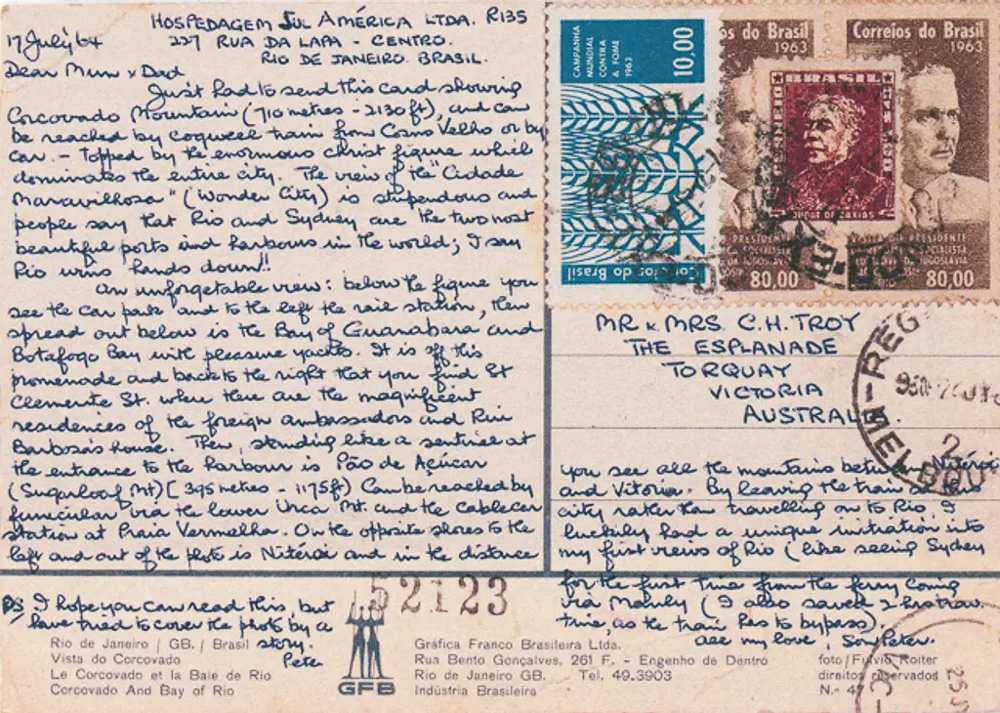 HOSPEDAGEM SUL AMÉRICA LTDA. R135
17 July '64
227 RUA DA LAPA - CENTRO.
RIO DE JANEIRO. BRASIL.
Dear Mum & Dad
Just had to send this card showing
Corcovado Mountain (710 metres - 2130 ft), and can
be reached by cogwheel train from Cosmo Velho or by
car. - Topped by the enormous Christ figure which
dominates the entire city. The view of the "Cidade
Maravilhosa" (Wonder City) is stupendous and
people say that Rio and Sydney are the two most
beautiful ports and harbours in the world; I say
Rio wins hands down!!
An unforgetable view: below the figure you
see the car park and to the left the rail station, then
spread out below is the Bay of Guanabara and
Botafogo Bay with pleasure yachts. It is off this
promenade and back to the right that you find St
Clemente St. where there are the magnificent
residences of the foreign ambassadors and Rui
Barbosa's house. Then, standing like a sentinel at
the entrance to the harbour is Pão de Açúcar
(Sugarloaf Mt) [395 metres - 1175 ft) Can be reached by
funicular via the lower Urca Mt. and the cablecar
station at Praia Vermelha. On the opposite shores to the
left and out of the photo is Nitéroi and in the distance
CAMPANHA
MUNDIAL
CONTRA
A FOME
1963
10,00
Correios do Brasil
Correios do Brasil
1963
Correios do Brasil
1963
BRASIL
CORREIO
DUQUE DE CAXIAS
PRESIDENTE
80,00
PRESIDENTE
IUGOSLAVIA
80,00
MR & MRS. C.H. TROY
THE ESPLANADE
TORQUAY
VICTORIA
AUSTRAL
REG
MELBOU
you see all the mountains between Nitéroi
and Vitoria. By leaving the train at this
city rather than travelling on to Rio, I
luckily had a unique initiation into
my first views of Rio (like seeing Sydney
for the first time from the ferry coming
via Manly (I also saved 2 hrs trav.
time, as the train has to bypass).
all my love, Son Peter.
52123
PS I hope you can read this, but
have tried to cover the photo by a
story.
Peter
Rio de Janeiro / GB. / Brasil
Vista do Corcovado
Le Corcovado et la Baie de Rio
Corcovado And Bay of Rio
GFB
Gráfica Franco Brasileira Ltda.
Rua Bento Gonçalves, 261 F. - Engenho de Dentro
Rio de Janeiro GB. Tel. 49.3903
Indústria Brasileira
foto/Fulvio Roiter
direitos reservados
N.º 47